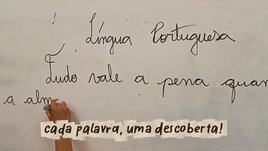 Língua Portuguesa
Tudo vale a pena quan
a alm
cada palavra, uma descoberta!